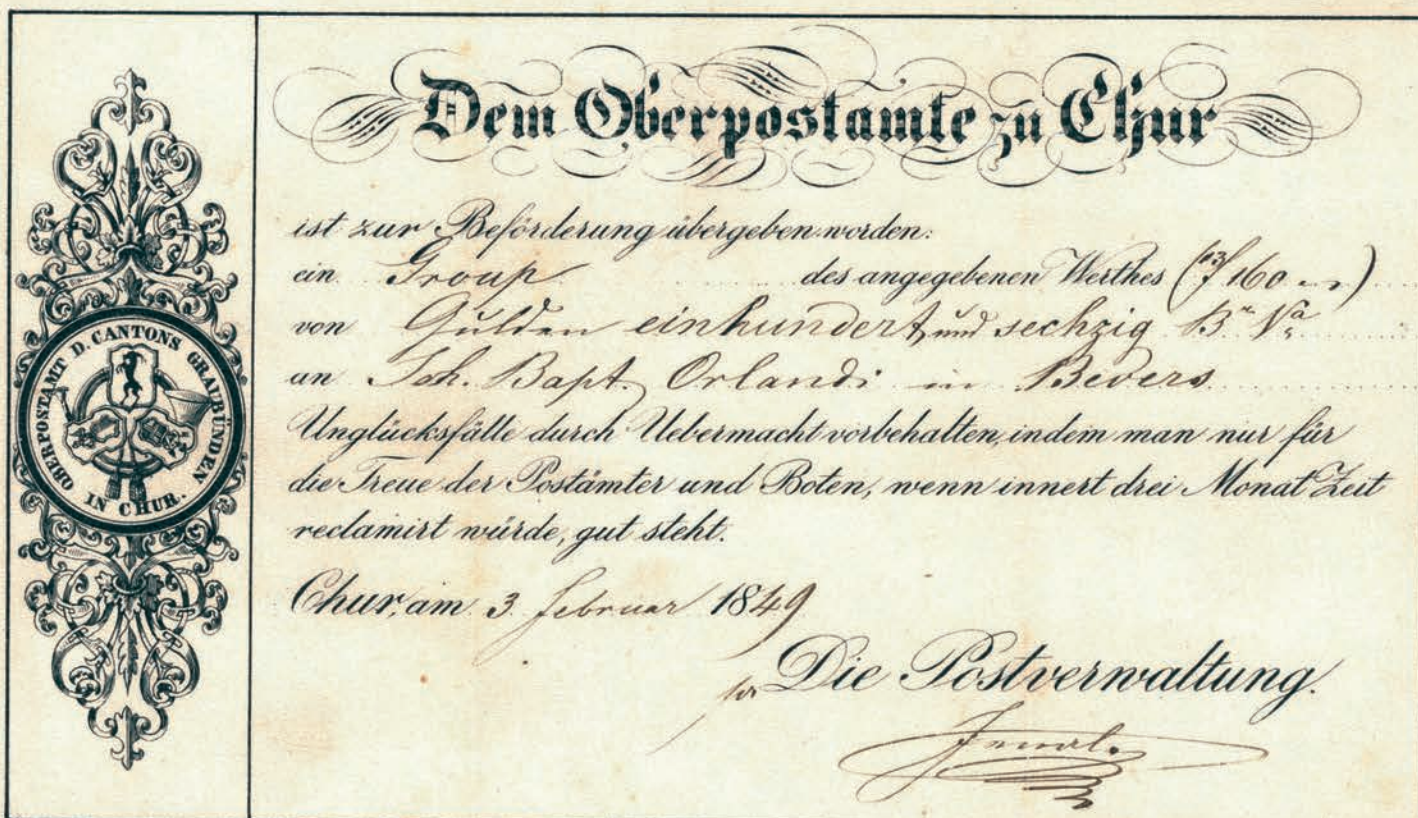 OBERPOSTAMT D. CANTONS GRAUBÜNDEN
IN CHUR.
Dem Oberpostamte zu Chur
ist zur Beförderung übergeben worden:
ein Group des angegebenen Werthes (f 160 )
von Gulden einhundert und sechzig
an Joh. Bapt. Orlandi in Bevers
Unglücksfälle durch Uebermacht vorbehalten, indem man nur für
die Treue der Postämter und Boten, wenn innert drei Monat Zeit
reclamirt würde, gut steht.
Chur, am 3. februar 1849
Die Postverwaltung.